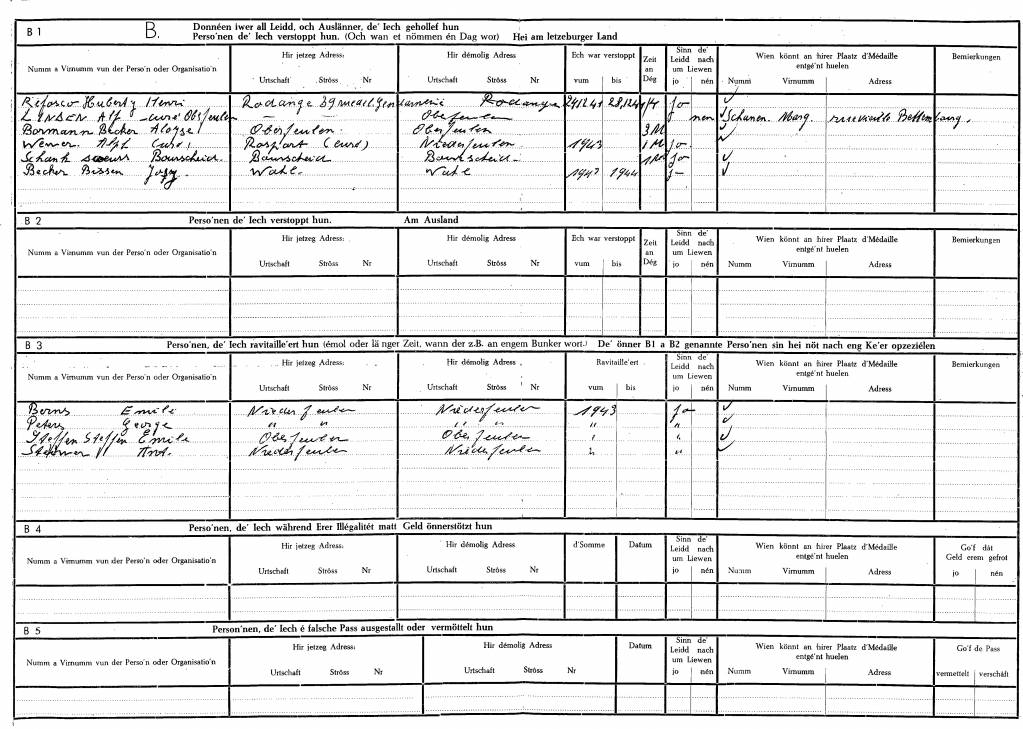 B 1 B. Donnéen iwer all Leidd, och Auslänner, de' Iech gehollef hun
Perso'nen de' Iech verstoppt hun. (Och wan et nömmen én Dag wor) Hei am letzeburger Land
Numm a Virnumm vun der Perso'n oder Organisatio'n Hir jetzeg Adress: Hir démolig Adress: Ech war verstoppt Zeit an Dég Sinn de' Leidd nach um Liewen Wien könnt an hirer Plaatz d'Médaille entgé'nt huelen Bemierkungen
Urtschaft Ströss Nr Urtschaft Ströss Nr vum bis jo nén Numm Virnumm Adress
Huberty Henri Rodange 39 Gendarmerie Rodange 24.12.41 28.12.41 jo
LINDEN Alf curé Oberfeulen — — Oberfeulen nen Schanen Marg. Bettemburg.
Bormann Becher Aloyse Oberfeulen. Oberfeulen 3 M
Wener. Alph Curé, Rosport (curé) Niederfeulen 1943 1 M jo.
Schank soeurs Bourscheid. Bourscheid Bourscheid. 1 M jo
Becker Bissen Josy Wahl. Wahl 1943 1944 j—
B 2 Perso'nen de' Iech verstoppt hun. Am Ausland
Numm a Virnumm vun der Perso'n oder Organisatio'n Hir jetzeg Adress: Hir démolig Adress Ech war verstoppt Zeit an Dég Sinn de' Leidd nach um Liewen Wien könnt an hirer Plaatz d'Médaille entgé'nt huelen Bemierkungen
Urtschaft Ströss Nr Urtschaft Ströss Nr vum bis jo nén Numm Virnumm Adress
B 3 Perso'nen, de' Iech ravitaille'ert hun (émol oder lä nger Zeit, wann der z.B. an engem Bunker wort.) De' önner B1 a B2 genannte Perso'nen sin hei nöt nach eng Ke'er opzeziélen
Numm a Virnumm vun der Perso'n oder Organisatio'n Hir jetzeg Adress: Hir démolig Adress Ravitaille'ert Sinn de' Leidd nach um Liewen Wien könnt an hirer Plaatz d'Médaille entgé'nt huelen Bemierkungen
Urtschaft Ströss Nr Urtschaft Ströss Nr vum bis jo nén Numm Virnumm Adress
Berns Emile Niederfeulen Niederfeulen 1943 jo
Peters George " " " " " "
Steffen Steffen Emile Oberfeulen Oberfeulen " "
Niederfeulen Niederfeulen " "
B 4 Perso'nen, de' Iech während Erer Illégalitét matt Geld önnerstötzt hun
Numm a Virnumm vun der Perso'n oder Organisatio'n Hir jetzeg Adress: Hir démolig Adress d'Somme Datum Sinn de' Leidd nach um Liewen Wien könnt an hirer Plaatz d'Médaille entgé'nt huelen Go'f dát Geld erem gefrot
Urtschaft Ströss Nr Urtschaft Ströss Nr jo nén Numm Virnumm Adress jo nén
B 5 Person'nen, de' Iech é falsche Pass ausgestallt oder vermöttelt hun
Numm a Virnumm vun der Perso'n oder Organisatio'n Hir jetzeg Adress: Hir démolig Adress Datum Sinn de' Leidd nach um Liewen Wien könnt an hirer Plaatz d'Médaille entgé'nt huelen Go'f de Pass
Urtschaft Ströss Nr Urtschaft Ströss Nr jo nén Numm Virnumm Adress vermettelt verschäft